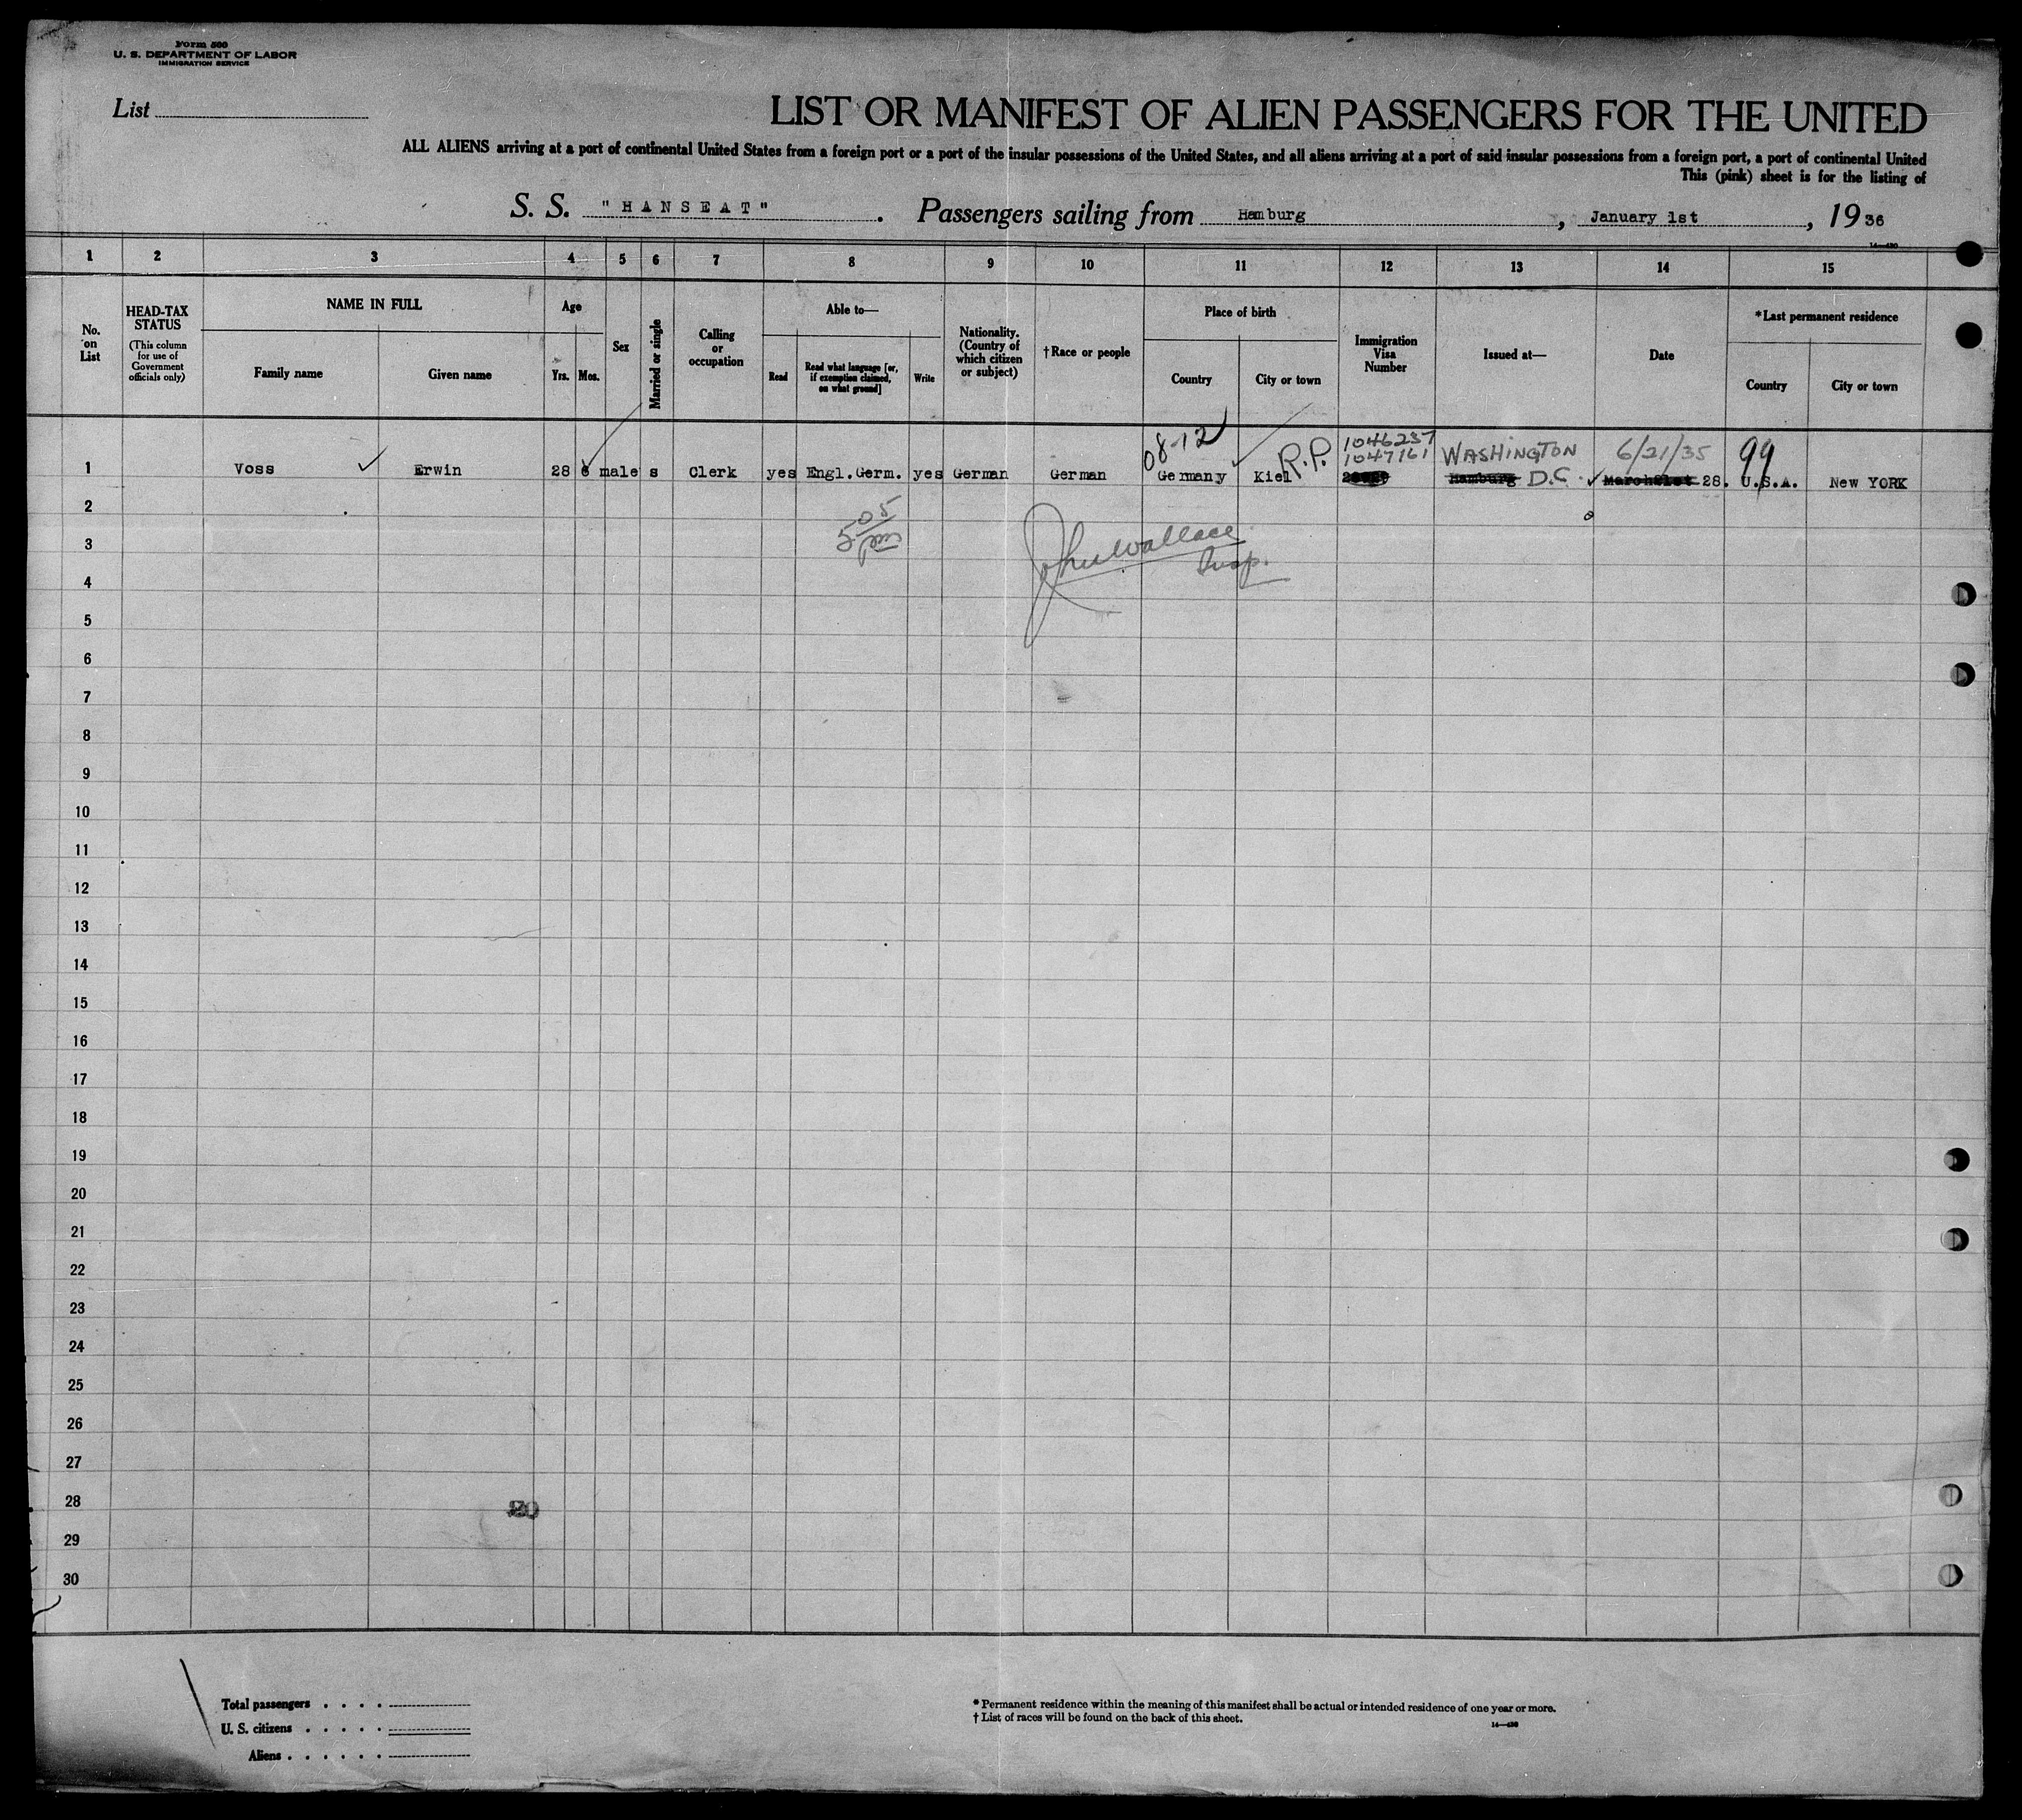 Form 500
U. S. DEPARTMENT OF LABOR
IMMIGRATION SERVICE
List
LIST OR MANIFEST OF ALIEN PASSENGERS FOR THE UNITED
ALL ALIENS arriving at a port of continental United States from a foreign port or a port of the insular possessions of the United States, and all aliens arriving at a port of said insular possessions from a foreign port, a port of continental United
This (pink) sheet is for the listing of
S. S. "HANSEAT". Passengers sailing from Hamburg, January 1st, 1936
1 2 3 4 5 6 7 8 9 10 11 12 13 14 15
No. on List
HEAD-TAX STATUS
(This column for use of Government officials only)
NAME IN FULL
Family name
Given name
Age
Yrs. Mos.
Sex
Married or single
Calling or occupation
Able to—
Read
Read what language [or, if exemption claimed, on what ground]
Write
Nationality. (Country of which citizen or subject)
† Race or people
Place of birth
Country
City or town
Immigration Visa Number
Issued at—
Date
*Last permanent residence
Country
City or town
08-12 1046237 WASHINGTON 6/21/35 99
R.P. 1047161
1 Voss Erwin 28 6 male s Clerk yes Engl.Germ. yes German German Germany Kiel Hamburg D.C. 28. U.S.A. New YORK
2
505
3
John Wallace
Insp.
4
5
6
7
8
9
10
11
12
13
14
15
16
17
18
19
20
21
22
23
24
25
26
27
28
29
30
Total passengers
U. S. citizens
Aliens
* Permanent residence within the meaning of this manifest shall be actual or intended residence of one year or more.
† List of races will be found on the back of this sheet.